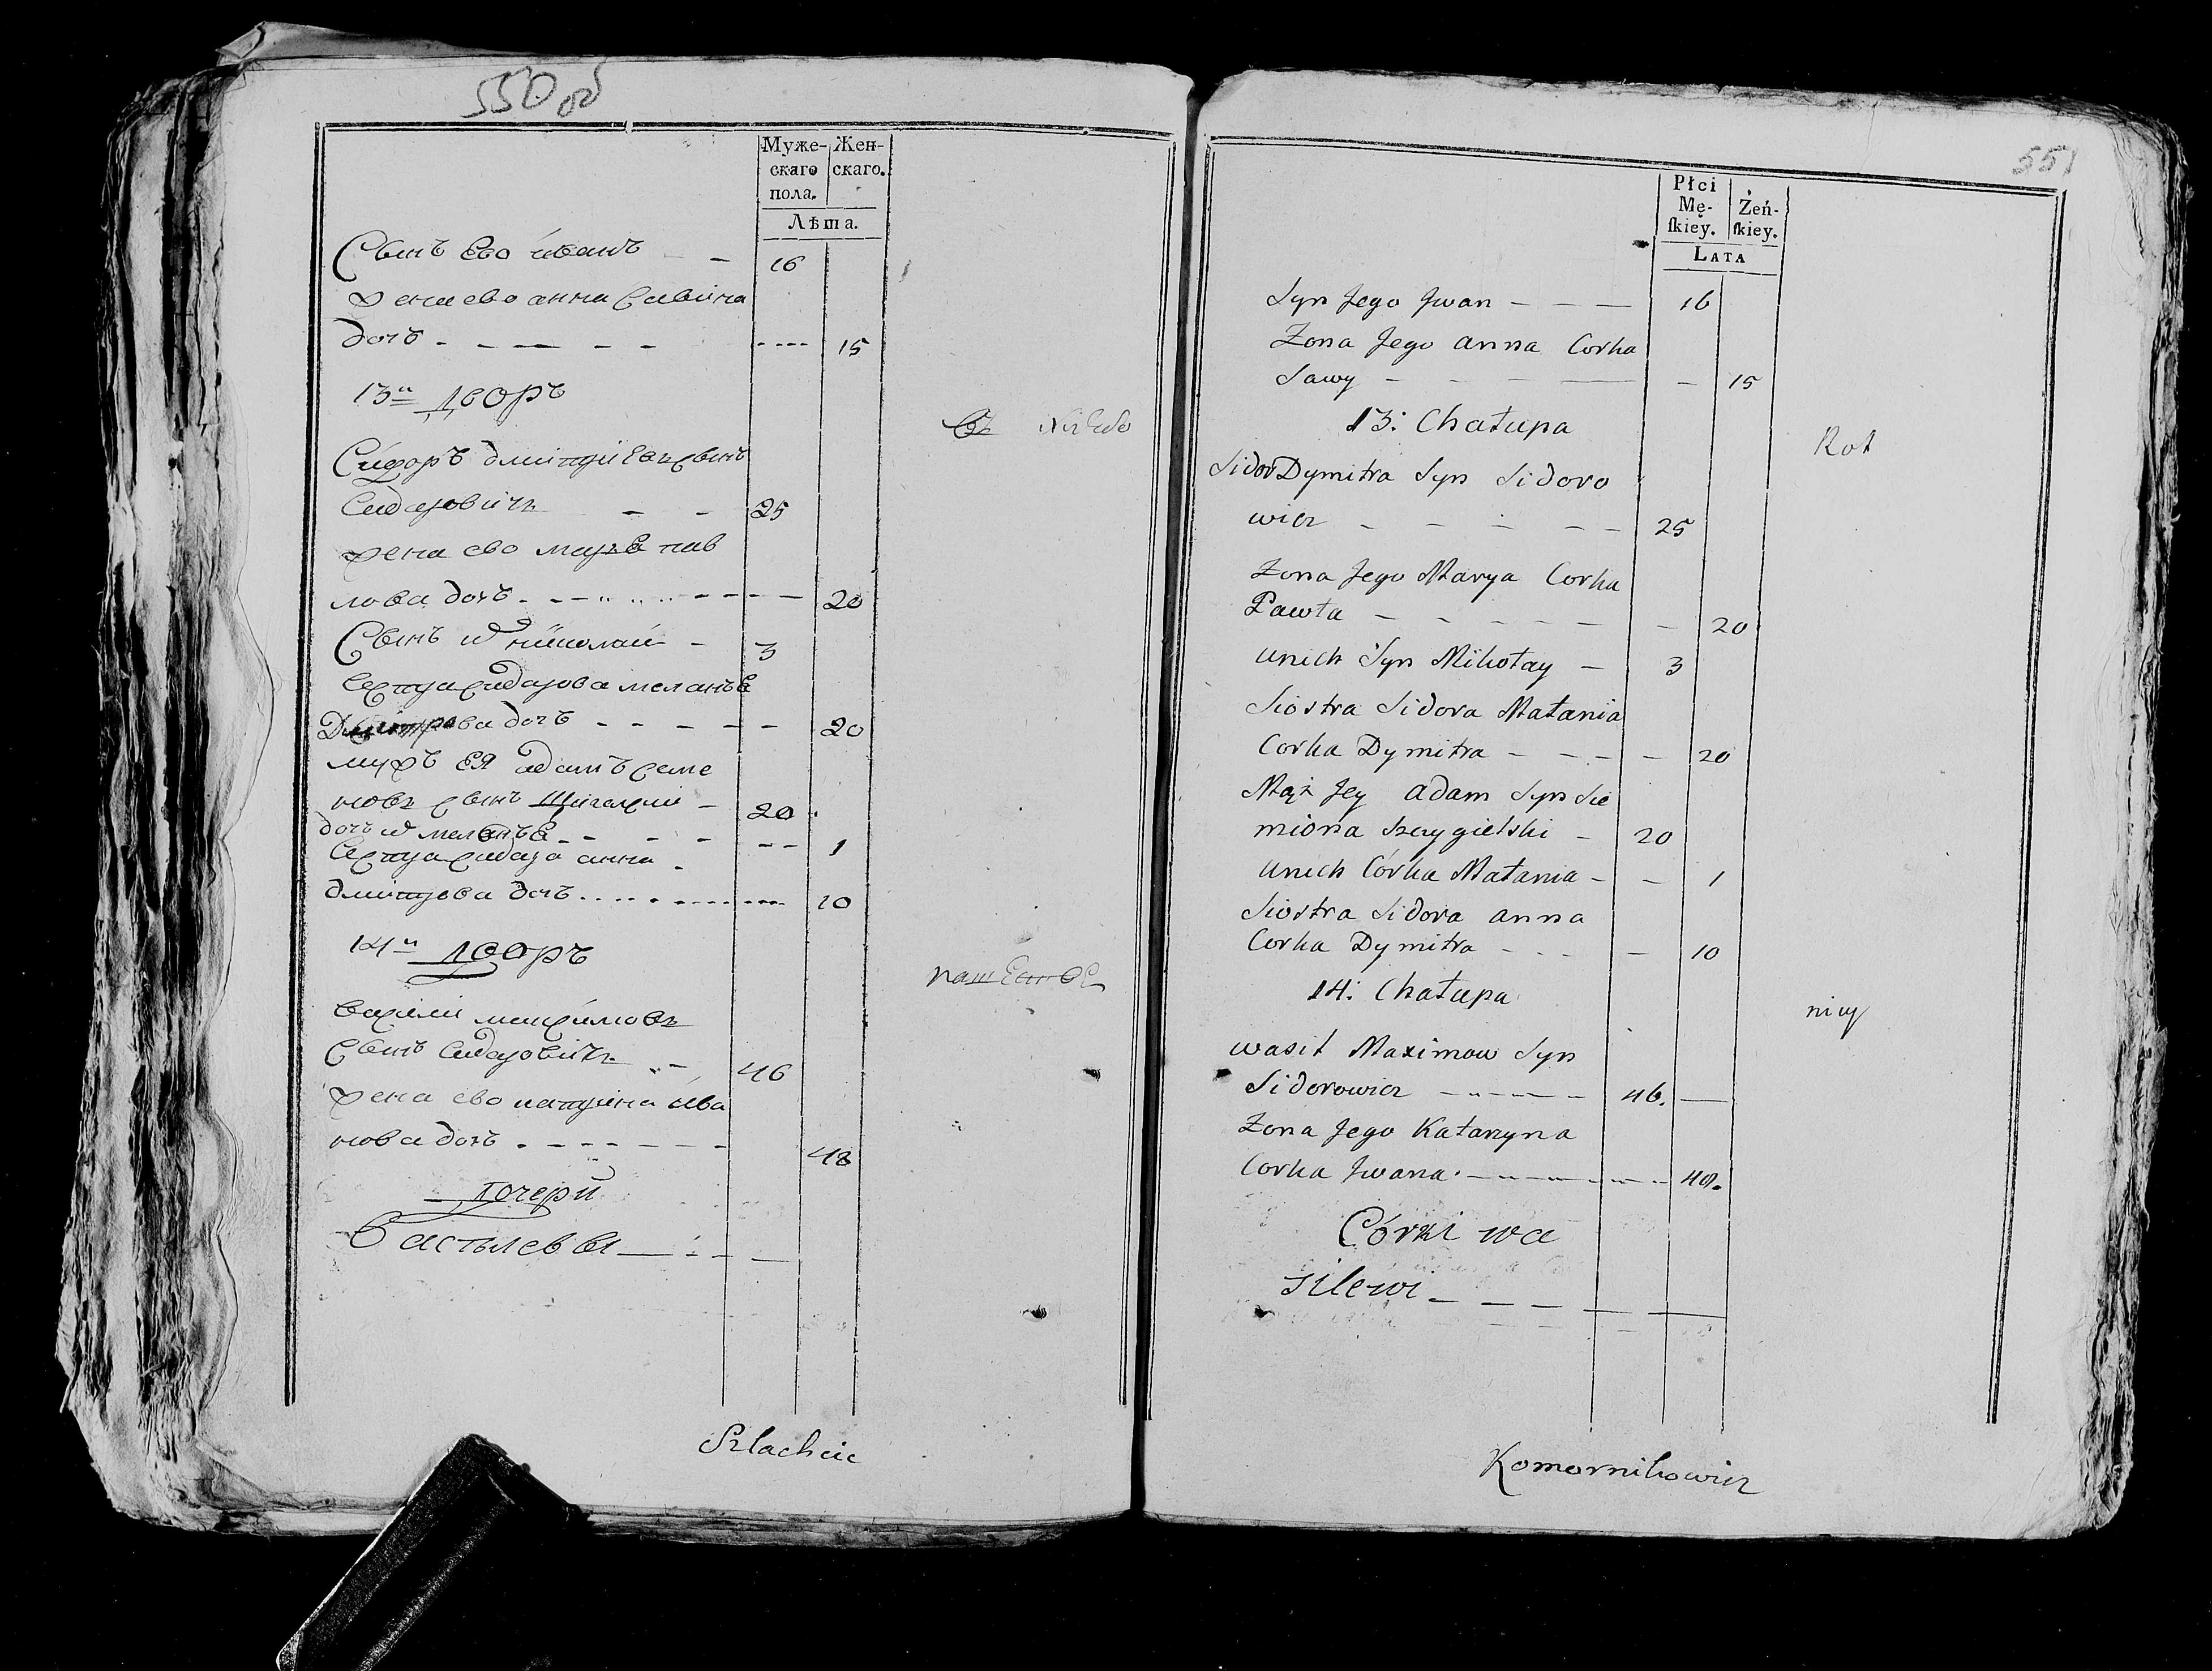 550 об
Муже-
скаго
пола.
Жен-
скаго.
Лѣта.
Сынъ Ево иванъ - - 16
жена ево анна Савина
дочъ - - - - - 15
13й дворъ
Сидоръ дмитриевъ сынъ
Сидаровичъ - - 25
жена ево марьЯ пав
лова дочъ - - - - - 20
Сынъ их николай - 3
Сестра сидарова
Дмитрова дочъ - - - - - 20
мужъ ЕЯ адамъ семе
новъ сынъ - 20
дочъ их - - - - - 1
Сестра сидара анна -
дмитрова дочъ - - - - - 10
14й дворъ
василий максимовъ
Сынъ Сидаровичъ - 46
жена ево катрина ива
нова дочъ - - - - - 48
Дочери
Василевы - - -
Szlachcic
551
Płci
Mę-
ſkiey.
Żeń-
ſkiey.
LATA
Syn Jego Jwan - - - 16
Zona Jego anna Corka
Sawy - - - - 15
13: Chałupa
Rot
Sidor Dymitra Syn Sidoro
wicz - - - - - 25
Zona Jego Marya Corka
Pawła - - - - - - 20
unich Syn Mikołay - 3
Siostra Sidora Małania
Corka Dymitra - - - - 20
Mąż Jey adam Syn Sie
miona Szczygielski - 20
unich Córka Małania - - 1
Siostra Sidora anna
Corka Dymitra - - - - 10
14: Chałupa
niczy
wasil Maximow Syn
Sidorowicz - - - - - 46. -
Zona Jego Katarzyna
Corka Jwana - - - - - 48.
Córki wa
silewi - - - - -
Komornikowicz